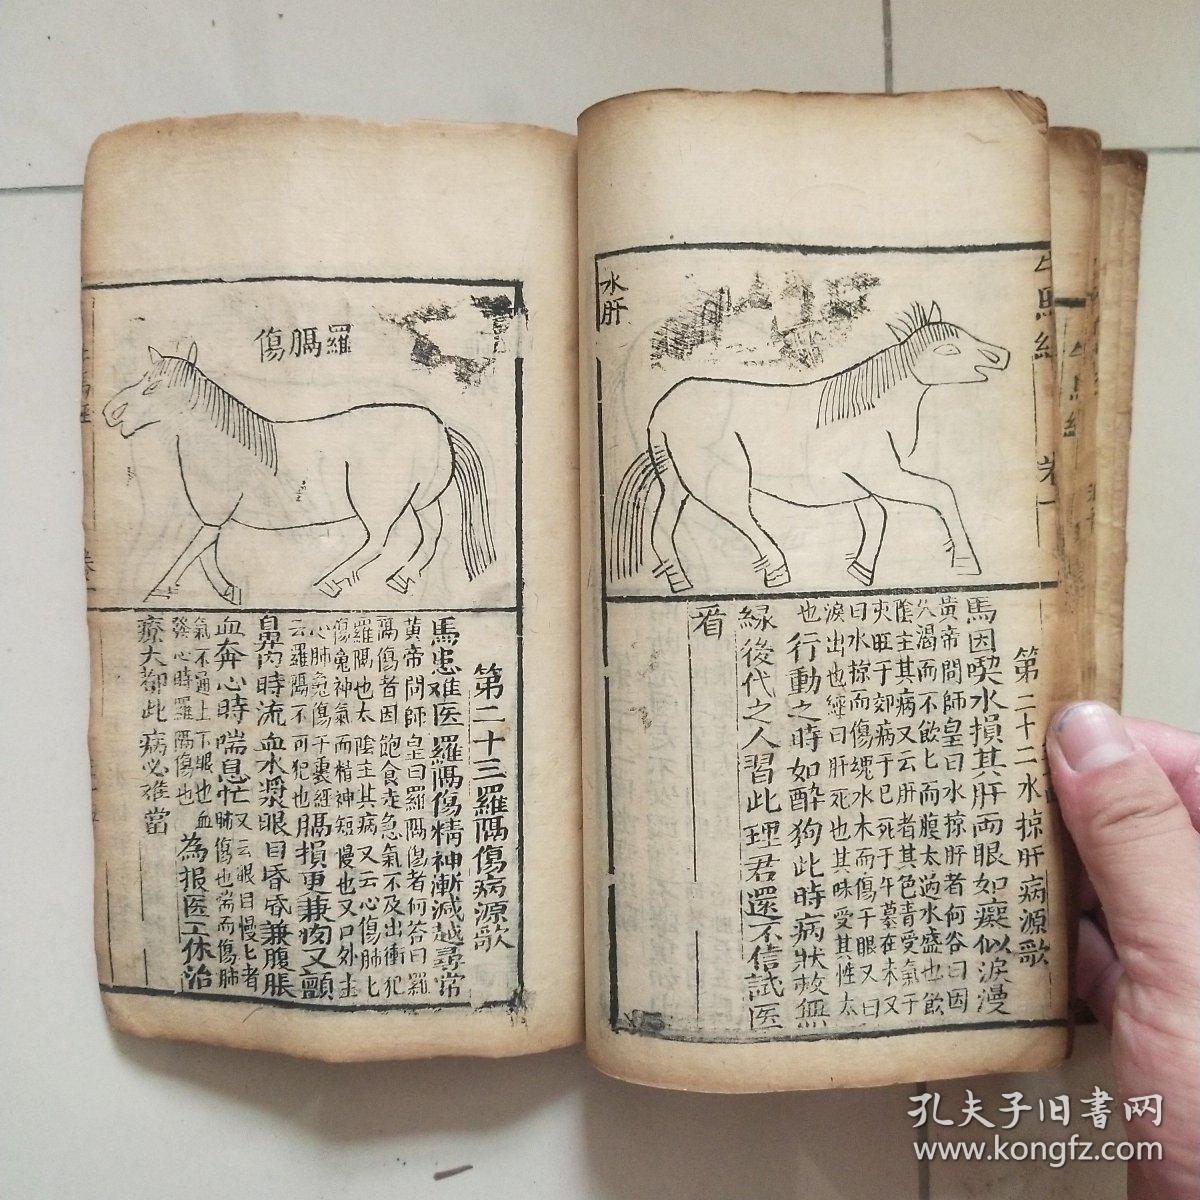 水肝
第二十二水掠肝病源歌
馬因喫水損其肝両眼如癡似淚漫
黄帝問師皇曰水掠肝者何答曰因
久渴而不飲匕而腹太满水盛也飲
陰主其病又云肝者其色青受氣于
夾旺于卯病于巳死于午墓在未又
曰水掠而傷魂水木而傷于眼又曰
淚出也經曰肝死也其味受其性太
也行動之時如醉狗此時病狀救無
緑後代之人習此理君還不信試医
看
羅膈傷
第二十三羅隔傷病源歌
馬患难医羅隔傷精神漸減越尋常
黄帝問師皇曰羅隔傷者何答曰羅
隔傷者因飽食走急氣不及出衝犯
羅隔也太陰主其病又云心傷肺匕
傷兔神氣而精神短慢也又口外主
心肺兔傷于裏經
云羅隔不可犯也膈損更兼㾭又顫
鼻内時流血水漿眼目昏昏兼腹脹
血奔心時喘息忙又云眼目慢匕者
肺傷也喘而傷肺
氣不通上下眼也血
發心時羅隔傷也為报医工休治
療大都此病必难當
孔夫子旧書网
www.kongfz.com